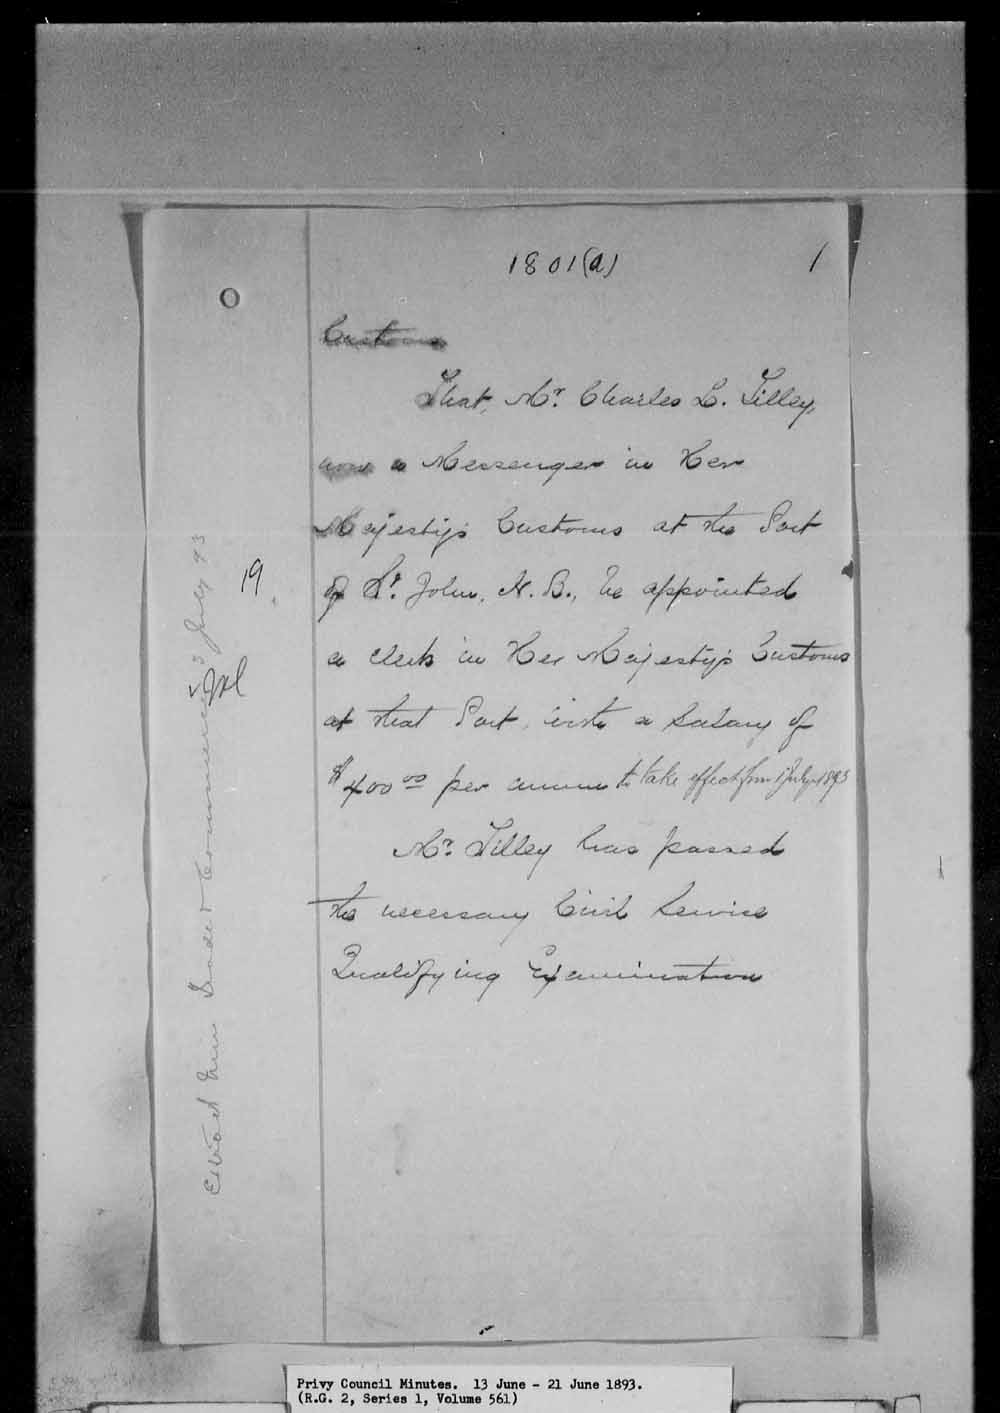 1801(a) 1
Customs
That, Mr. Charles L. Tilley,
now a Messenger in Her
Majesty's Customs at the Port
of St. John, N.B., be appointed
a Clerk in Her Majesty's Customs
at that Port, with a Salary of
$400.00 per annum to take effect from 1 July 1893
Mr. Tilley has passed
the necessary Civil Service
Qualifying Examination
19
Trade & Commerce 3 July 93
Privy Council Minutes. 13 June - 21 June 1893.
(R.G. 2, Series 1, Volume 561)